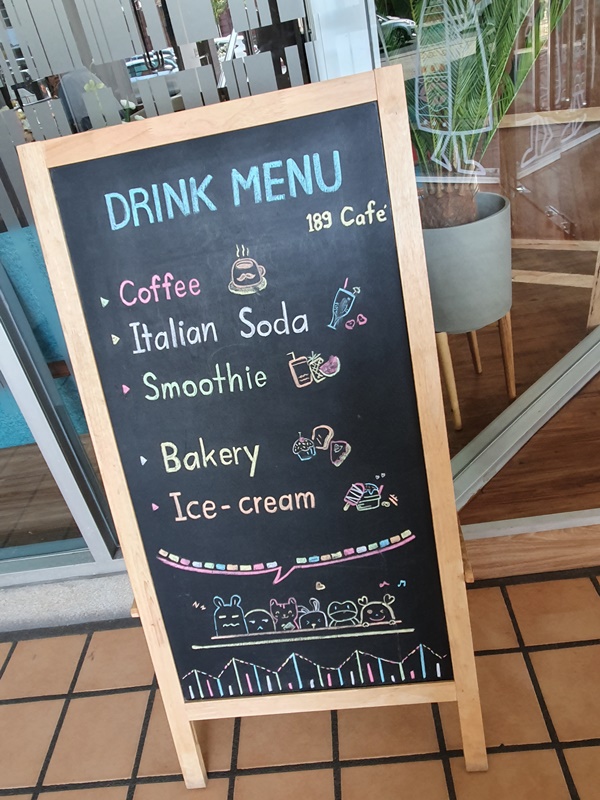 DRINK MENU
189 Café
Coffee
Italian Soda
Smoothie
Bakery
Ice-cream